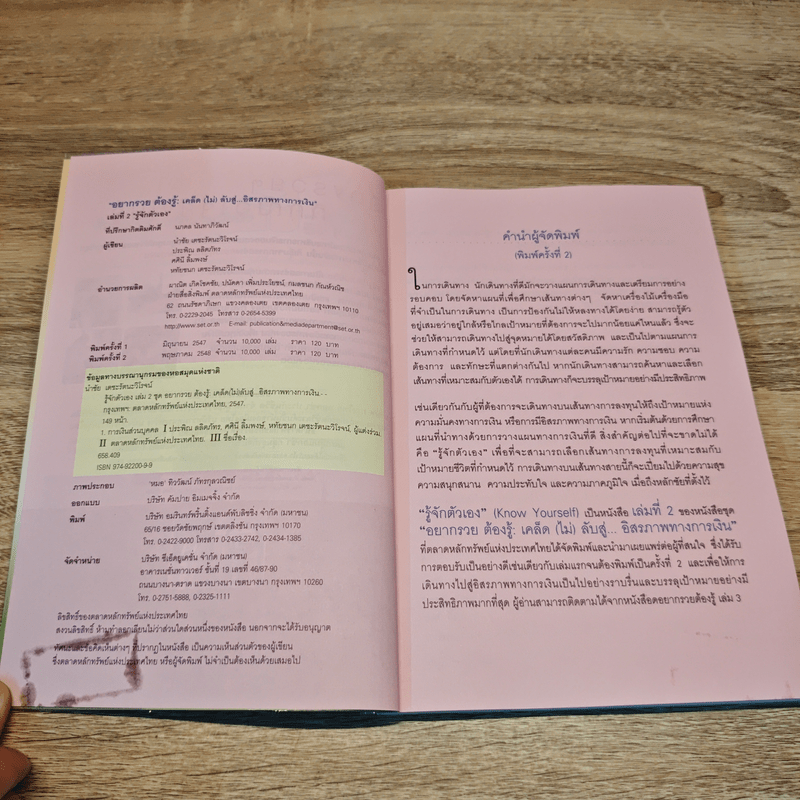 "อยากรวย ต้องรู้: เคล็ด (ไม่) ลับสู่...อิสรภาพทางการเงิน"
เล่มที่ 2 "รู้จักตัวเอง"
ที่ปรึกษากิตติมศักดิ์ นภดล นันทาภิวัฒน์
ผู้เขียน นำชัย เตชะรัตนะวิโรจน์
ประพิณ ลลิตภัทร
ศศินี ลิ้มพงษ์
หทัยชนก เตชะรัตนะวิโรจน์
อำนวยการผลิต มารนิต เกิดโชคชัย, ปนัดดา เพิ่มประโยชน์, กมลชนก กัณหัวณิช
ฝ่ายสื่อสิ่งพิมพ์ ตลาดหลักทรัพย์แห่งประเทศไทย
62 ถนนรัชดาภิเษก แขวงคลองเตย เขตคลองเตย กรุงเทพฯ 10110
โทร. 0-2229-2045 โทรสาร 0-2654-5399
http://www.set.or.th E-mail: publication&mediadepartment@set.or.th
พิมพ์ครั้งที่ 1 มิถุนายน 2547 จำนวน 10,000 เล่ม ราคา 120 บาท
พิมพ์ครั้งที่ 2 พฤษภาคม 2548 จำนวน 10,000 เล่ม ราคา 120 บาท
ข้อมูลทางบรรณานุกรมของหอสมุดแห่งชาติ
นำชัย เตชะรัตนะวิโรจน์
รู้จักตัวเอง เล่ม 2 ชุด อยากรวย ต้องรู้: เคล็ด(ไม่)ลับสู่...อิสรภาพทางการเงิน.--
กรุงเทพฯ: ตลาดหลักทรัพย์แห่งประเทศไทย, 2547.
149 หน้า.
1. การเงินส่วนบุคคล I ประพิณ ลลิตภัทร, ศศินี ลิ้มพงษ์, หทัยชนก เตชะรัตนะวิโรจน์, ผู้แต่งร่วม.
II ตลาดหลักทรัพย์แห่งประเทศไทย, III ชื่อเรื่อง.
658.409
ISBN 974-92200-9-9
ภาพประกอบ 'หมอ' ทิววัฒน์ ภัทรกุลวณิชย์
ออกแบบ บริษัท คัมปาย อิมเมจจิ้ง จำกัด
พิมพ์ บริษัท อมรินทร์พริ้นติ้งแอนด์พับลิชชิ่ง จำกัด (มหาชน)
65/16 ซอยวัดชัยพฤกษ์ เขตตลิ่งชัน กรุงเทพฯ 10170
โทร. 0-2422-9000 โทรสาร 0-2433-2742, 0-2434-1385
จัดจำหน่าย บริษัท ซีเอ็ดยูเคชั่น จำกัด (มหาชน)
อาคารเนชั่นทาวเวอร์ ชั้นที่ 19 เลขที่ 46/87-90
ถนนบางนา-ตราด แขวงบางนา เขตบางนา กรุงเทพฯ 10260
โทร. 0-2751-5888, 0-2325-1111
ลิขสิทธิ์ของตลาดหลักทรัพย์แห่งประเทศไทย
สงวนลิขสิทธิ์ ห้ามทำลอกเลียนไม่ว่าส่วนใดส่วนหนึ่งของหนังสือ นอกจากจะได้รับอนุญาต
ทัศนะและข้อคิดเห็นต่างๆ ที่ปรากฏในหนังสือ เป็นความเห็นส่วนตัวของผู้เขียน
ซึ่งตลาดหลักทรัพย์แห่งประเทศไทย หรือผู้จัดพิมพ์ ไม่จำเป็นต้องเห็นด้วยเสมอไป
คำนำผู้จัดพิมพ์
(พิมพ์ครั้งที่ 2)
ในการเดินทาง นักเดินทางที่ดีมักจะวางแผนการเดินทางและเตรียมการอย่าง
รอบคอบ โดยจัดหาแผนที่เพื่อศึกษาเส้นทางต่างๆ จัดหาเครื่องไม้เครื่องมือ
ที่จำเป็นในการเดินทาง เป็นการป้องกันไม่ให้หลงทางได้โดยง่าย สามารถรู้ตัว
อยู่เสมอว่าอยู่ใกล้หรือไกลเป้าหมายที่ต้องการจะไปมากน้อยแค่ไหนแล้ว ซึ่งจะ
ช่วยให้สามารถเดินทางไปสู่จุดหมายได้โดยสวัสดิภาพ และเป็นไปตามแผนการ
เดินทางที่กำหนดไว้ แต่โดยที่นักเดินทางแต่ละคนมีความรัก ความชอบ ความ
ต้องการ และทักษะที่แตกต่างกันไป หากนักเดินทางสามารถค้นหาและเลือก
เส้นทางที่เหมาะสมกับตัวเองได้ การเดินทางก็จะบรรลุเป้าหมายอย่างมีประสิทธิภาพ
เช่นเดียวกันกับผู้ที่ต้องการจะเดินทางบนเส้นทางการลงทุนให้ถึงเป้าหมายแห่ง
ความมั่นคงทางการเงิน หรือการมีอิสรภาพทางการเงิน หากเริ่มต้นด้วยการศึกษา
แผนที่นำทางด้วยการวางแผนการเงินที่ดี สิ่งสำคัญต่อไปที่จะขาดไม่ได้
คือ "รู้จักตัวเอง" เพื่อที่จะสามารถเลือกเส้นทางการลงทุนที่เหมาะสมกับ
เป้าหมายชีวิตที่กำหนดไว้ การเดินทางบนเส้นทางสายนี้ก็จะเปี่ยมไปด้วยความสุข
ความสนุกสนาน ความประทับใจ และความภาคภูมิใจ เมื่อถึงหลักชัยที่ตั้งไว้
"รู้จักตัวเอง" (Know Yourself) เป็นหนังสือ เล่มที่ 2 ของหนังสือชุด
"อยากรวย ต้องรู้: เคล็ด (ไม่) ลับสู่... อิสรภาพทางการเงิน"
ที่ตลาดหลักทรัพย์แห่งประเทศไทยได้จัดพิมพ์และนำมาเผยแพร่ต่อผู้ที่สนใจ ซึ่งได้รับ
การตอบรับเป็นอย่างดีเช่นเดียวกับเล่มแรกจนต้องพิมพ์เป็นครั้งที่ 2 และเพื่อให้การ
เดินทางไปสู่อิสรภาพทางการเงินเป็นไปอย่างราบรื่นและบรรลุเป้าหมายอย่างมี
ประสิทธิภาพมากที่สุด ผู้อ่านสามารถติดตามได้จากหนังสืออยากรวยต้องรู้ เล่ม 3